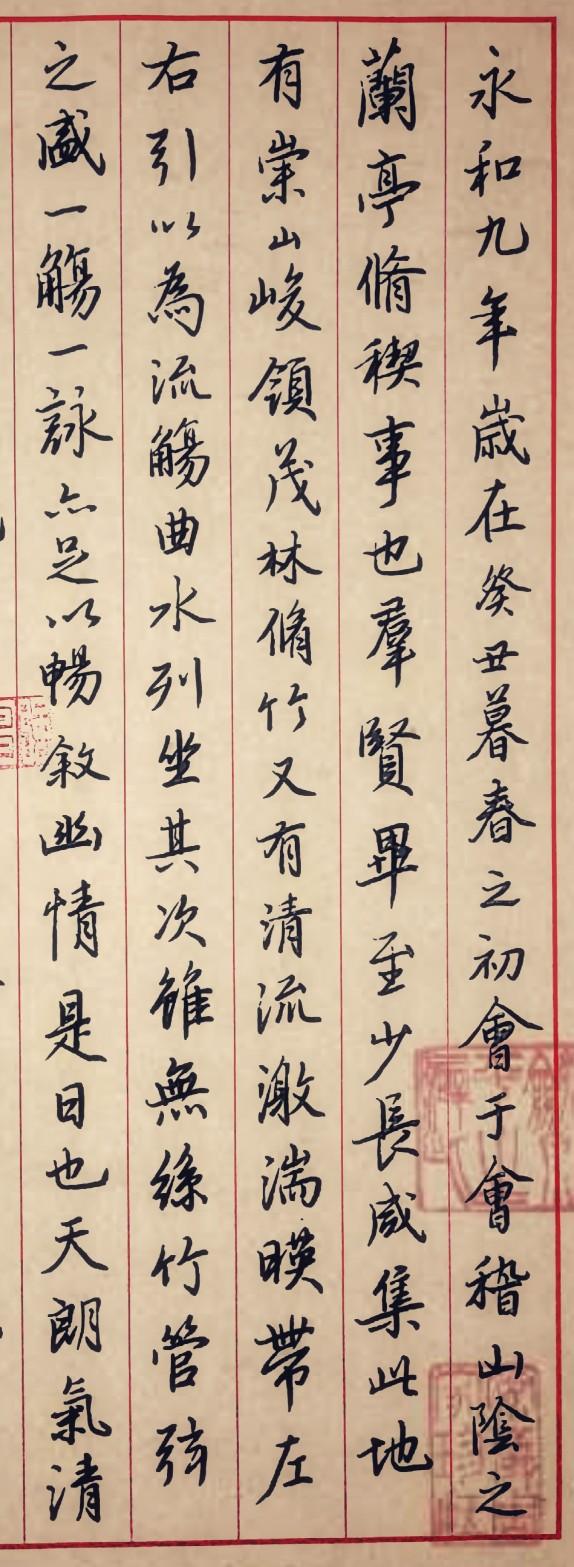 永和九年歲在癸丑暮春之初會于會稽山陰之
蘭亭脩稧事也羣賢畢至少長咸集此地
有崇山峻領茂林脩竹又有清流激湍暎帶左
右引以為流觴曲水列坐其次雖無絲竹管弦
之盛一觴一詠亦足以暢敘幽情是日也天朗氣清